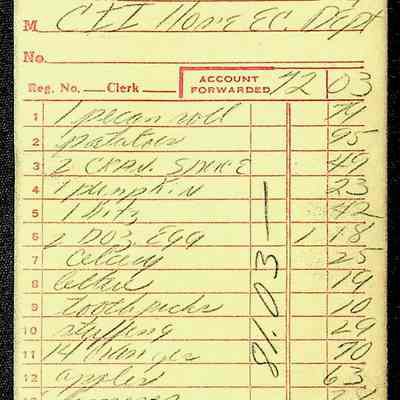 M CFI Home EC. Dept
No.
Reg. No. Clerk ACCOUNT FORWARDED 72 03
1 1 pecan roll 79
2 potatoes 95
3 2 CRAN. SAUCE 49
4 1 pumpkin 23
5 1 Ritz 42
6 2 DOZ. EGG 1 18
7 Celery 25
8 19
9 toothpicks 10
10 stuffing 29
11 14 oranges 70
12 apples 63
81.03